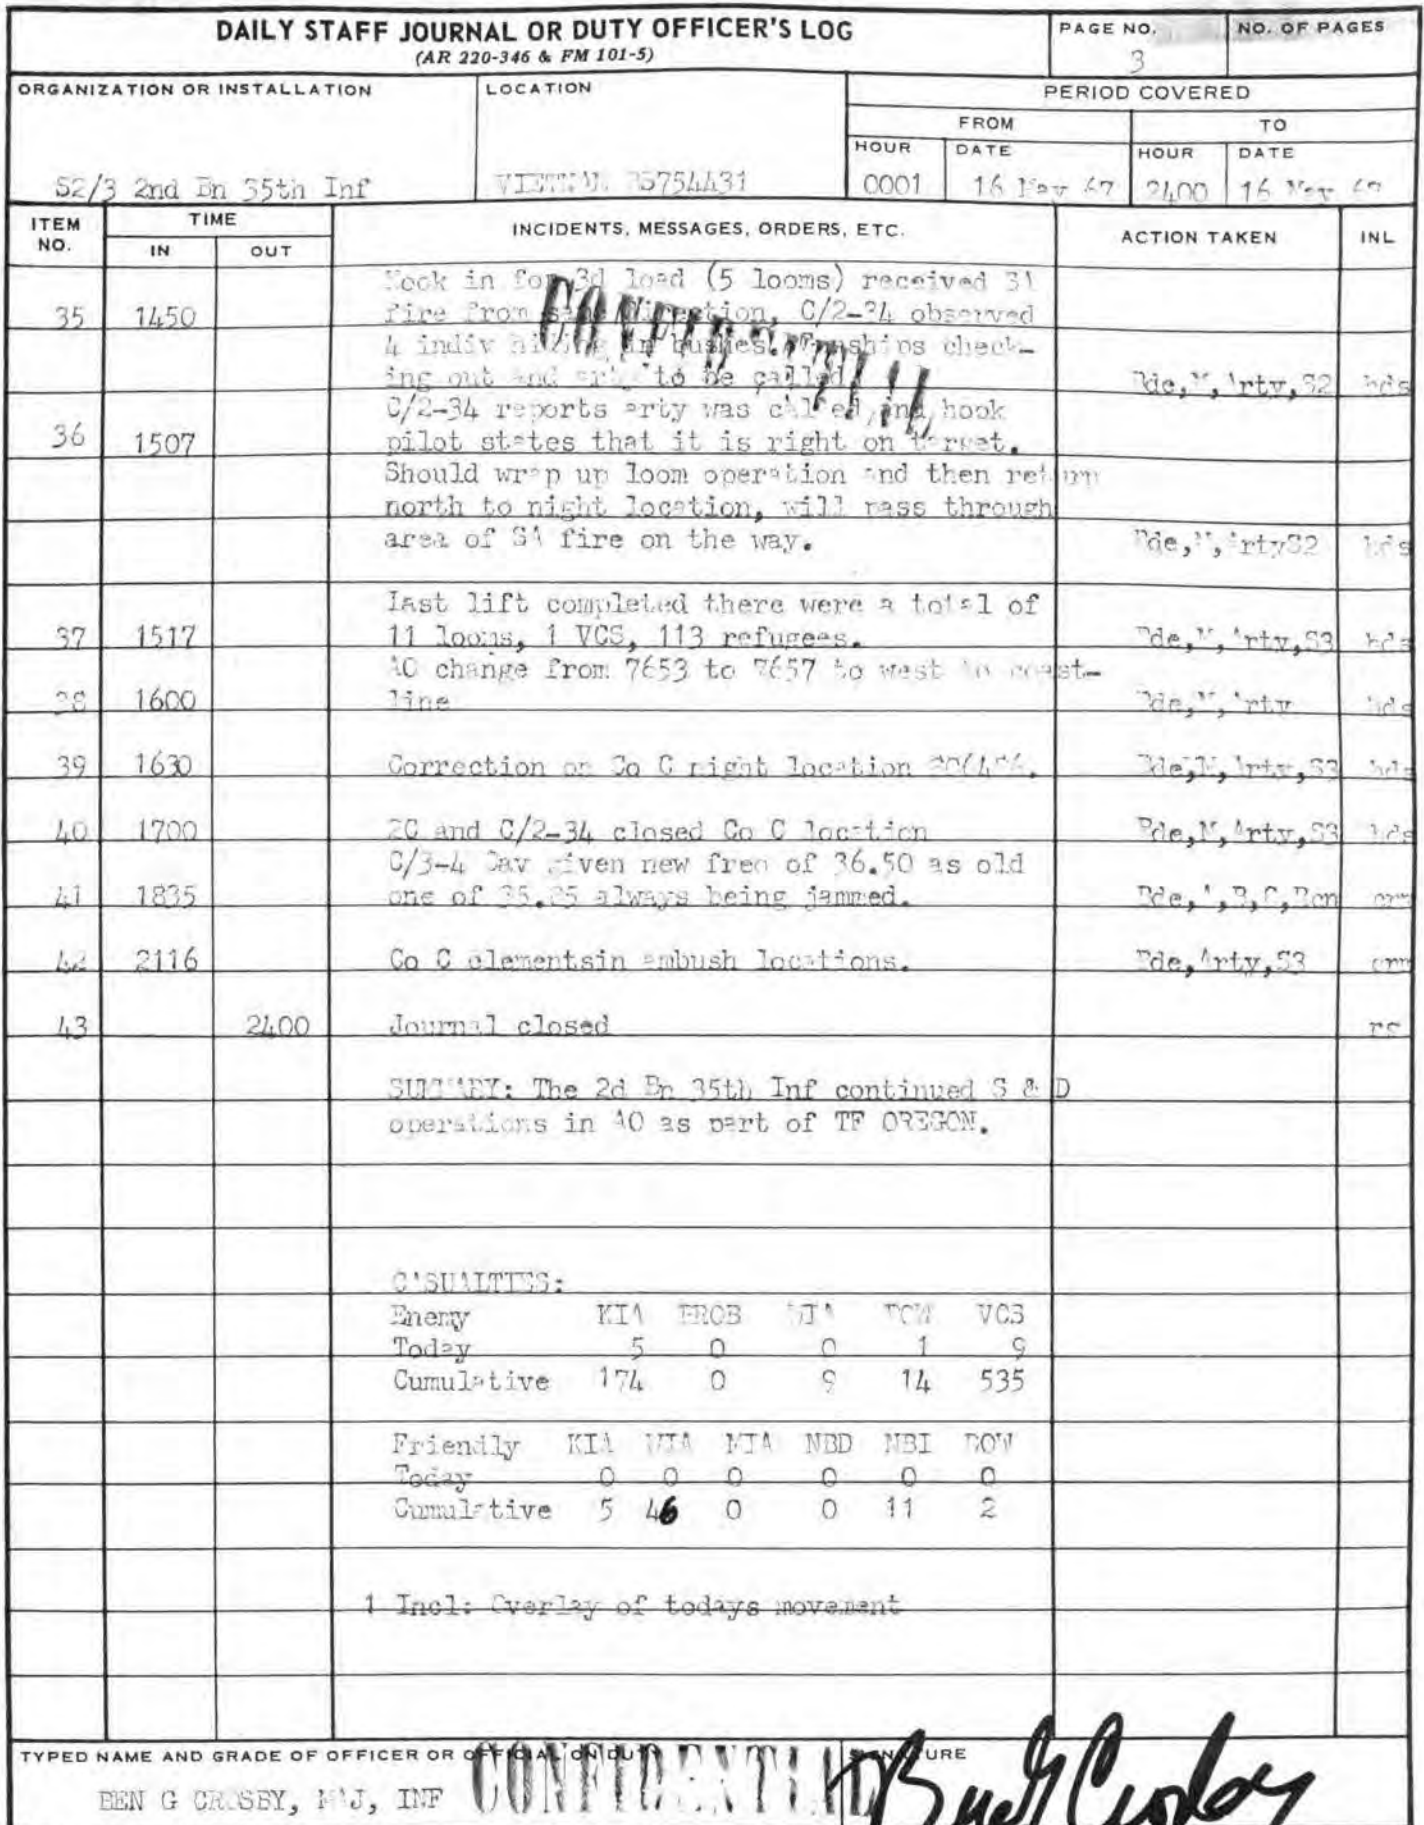 DAILY STAFF JOURNAL OR DUTY OFFICER'S LOG
(AR 220-346 & FM 101-5)
PAGE NO.
3
NO. OF PAGES
ORGANIZATION OR INSTALLATION
S2/3 2nd Bn 35th Inf
LOCATION
VIETNAM BS754431
PERIOD COVERED
FROM
TO
HOUR DATE HOUR DATE
0001 16 67 2400 16 67
ITEM NO.
TIME
IN OUT
INCIDENTS, MESSAGES, ORDERS, ETC.
ACTION TAKEN
INL
Hook in for 3d load (5 looms) received
35 1450 fire from same direction, C/2-34 observed
4 indiv hiding in bushes. Gunships check-
ing out and arty to be called Bde,M,Arty,S2 hds
CONFIDENTIAL
C/2-34 reports arty was called, and hook
36 1507 pilot states that it is right on target.
Should wrap up loom operation and then return
north to night location, will pass through
area of SA fire on the way. Bde,M,ArtyS2 hds
last lift completed there were a total of
37 1517 11 looms, 1 VCS, 113 refugees. Bde,M,Arty,S3 hds
AO change from 7653 to 7657 to west to coast-
38 1600 line Bde,M,Arty hds
39 1630 Correction on Co C night location Bde,M,Arty,S3 hds
40 1700 2C and C/2-34 closed Co C location Bde,M,Arty,S3 hds
C/3-4 Cav given new freq of 36.50 as old
41 1835 one of always being jammed. Bde,A,B,C,Rcn crm
42 2116 Co C elementsin ambush locations. Bde,Arty,S3 crm
43 2400 Journal closed rs
SUMMARY: The 2d Bn 35th Inf continued S & D
operations in AO as part of TF OREGON.
CASUALTIES:
Enemy KIA PROB WIA VCS
Today 5 0 0 1 9
Cumulative 174 0 9 14 535
Friendly KIA WIA MIA NBD NBI DOW
Today 0 0 0 0 0 0
Cumulative 5 46 0 0 11 2
1 Incl: Overlay of todays movement
TYPED NAME AND GRADE OF OFFICER OR OFFICIAL ON DUTY
BEN G CROSBY, MAJ, INF
CONFIDENTIAL
SIGNATURE
Ben G Crosby